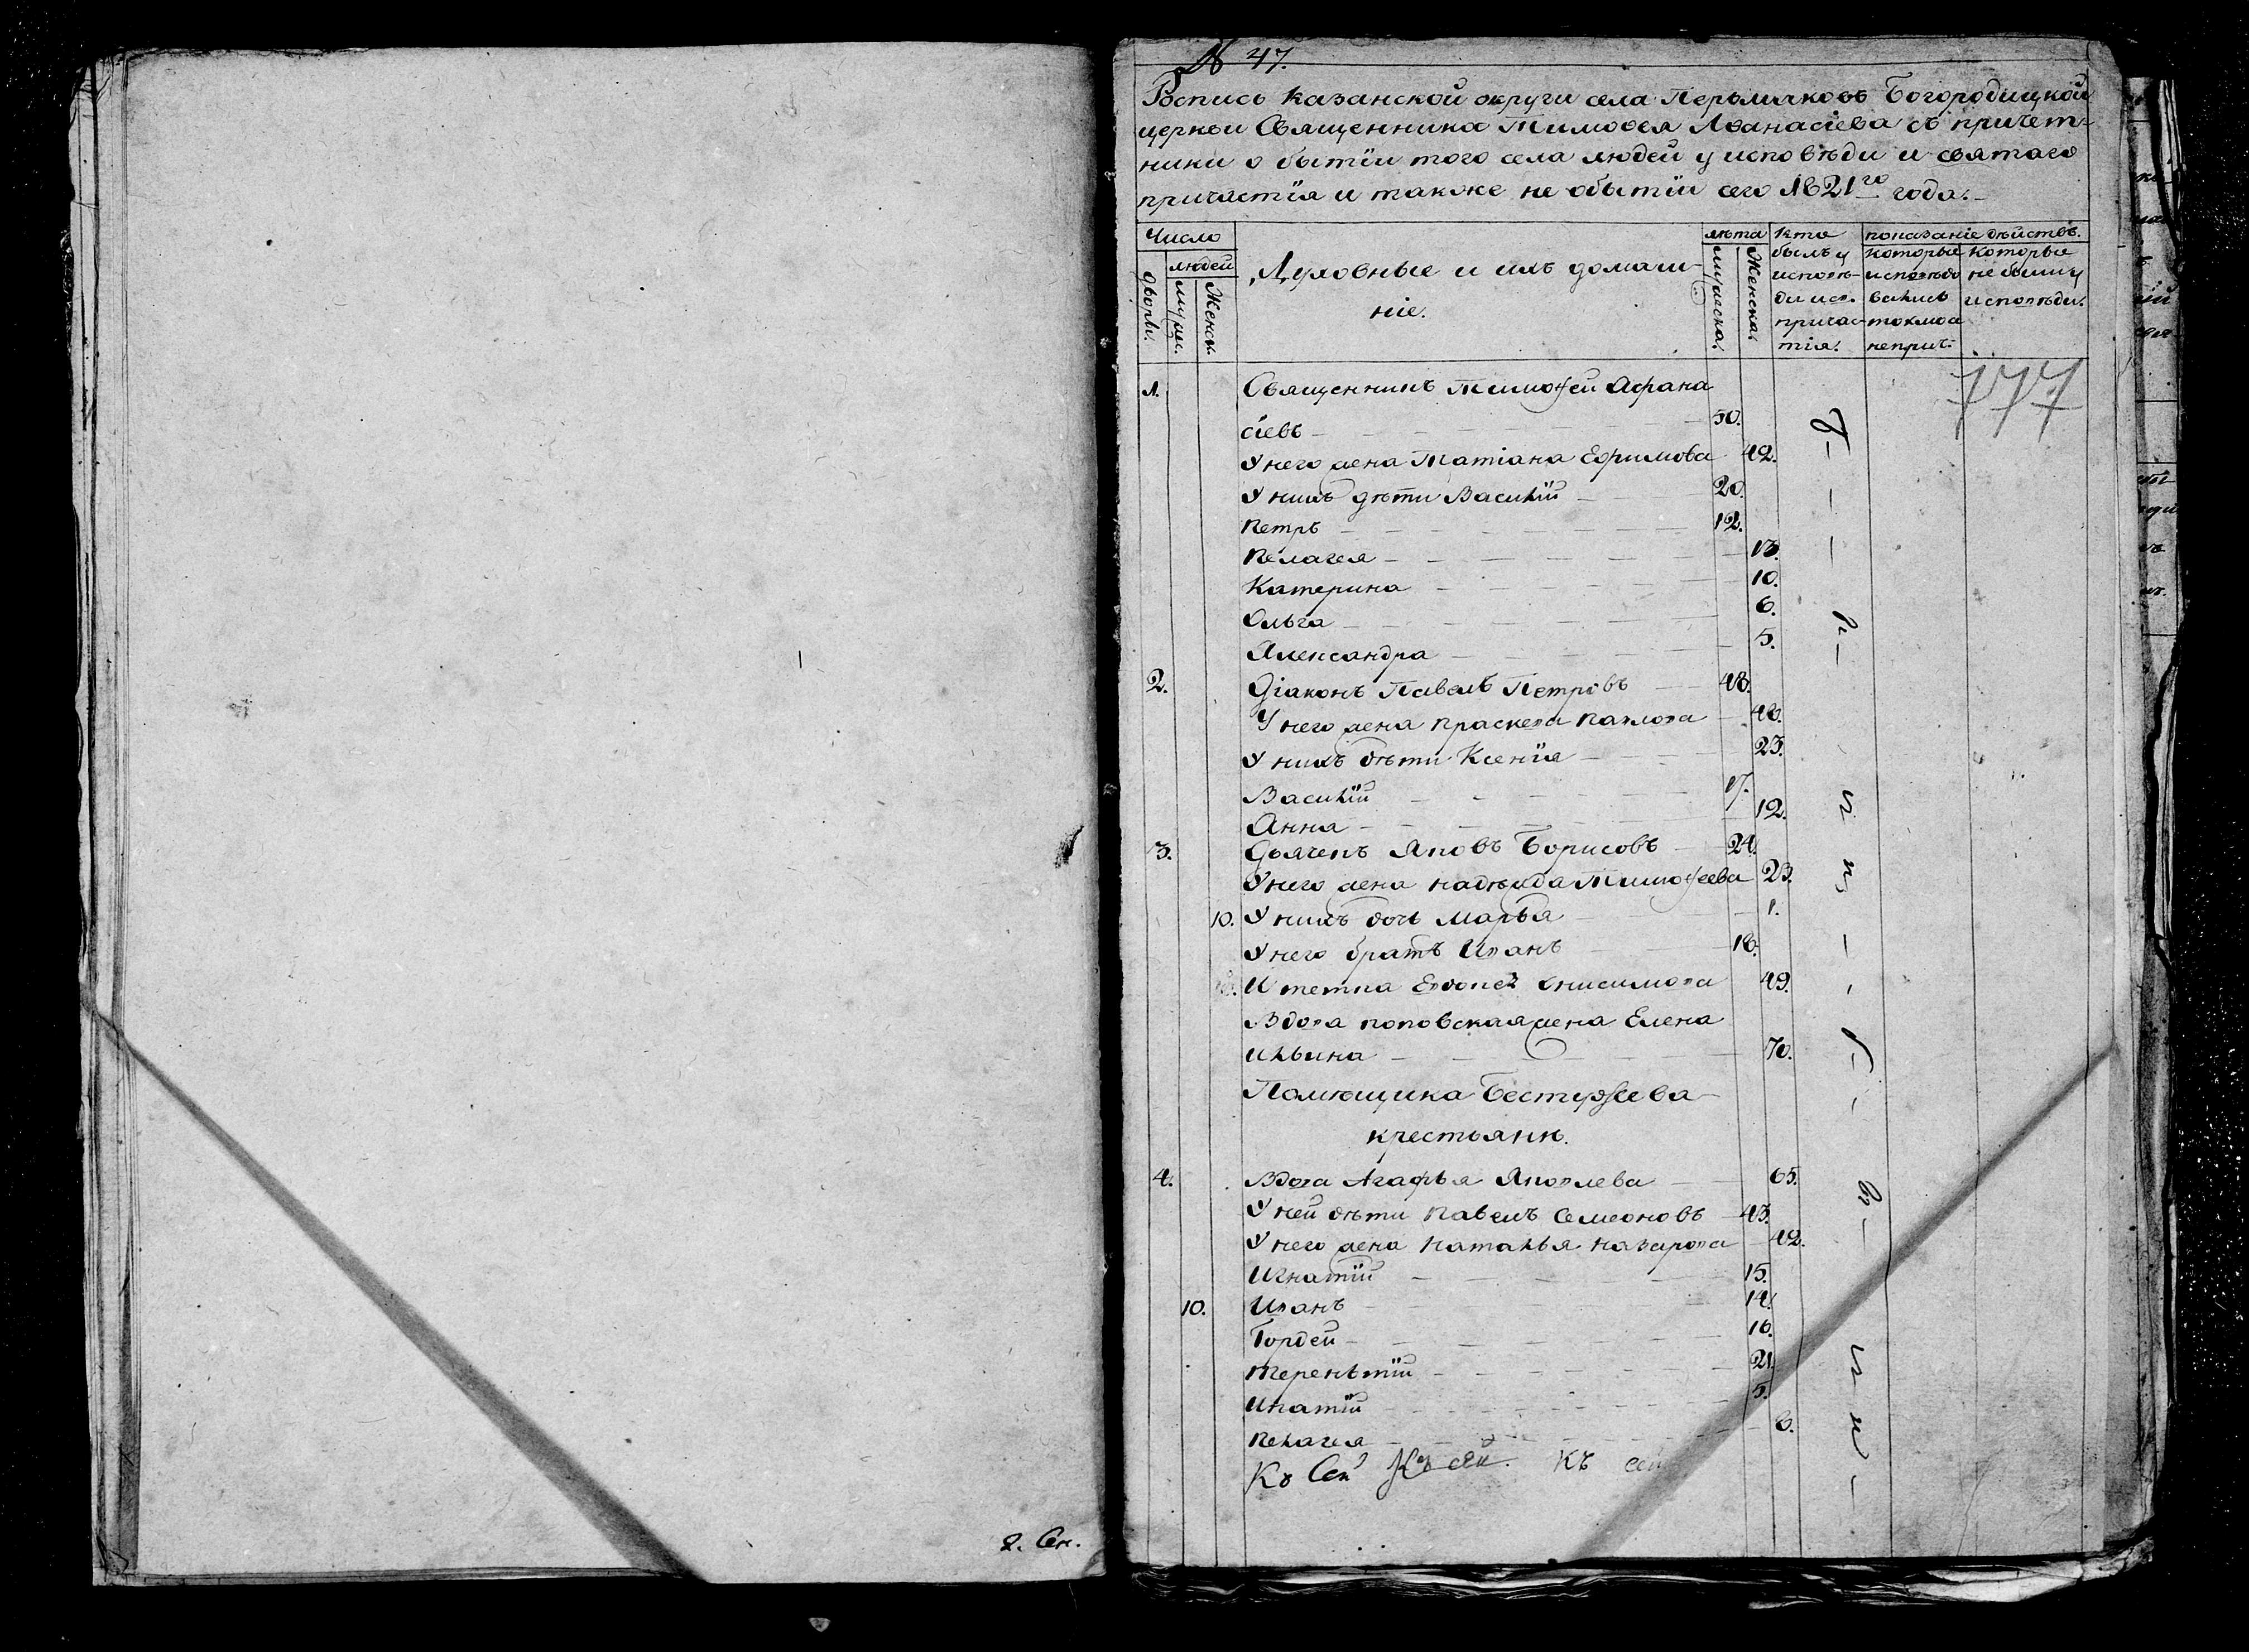 2. Сен.
№ 47.
Роспись Казанской округи села Перьмячковъ Богородицкой
церкви Священника Тимоѳея Аѳанасіева съ причет-
ники о бытїи того села людей у исповѣди и святаго
причястїя и также не обытїи сего 1821го года.
Число
людей
дворы.
мужи.
Женск.
Духовные и ихъ домаш-
ніе.
лѣта
мужеска.
Женска.
кто
былъ у
исповѣ-
ди и св.
причас-
тія.
показаніе дѣйствъ.
которые
исповѣдо
вались
токмо а
неприч:
которые
не были у
исповѣди.
777
1. Священникъ Тимофей Афана
сіевъ 50.
У него жена Татіана Ефримова 42.
У нихъ дѣти Василїй 20.
Петръ 12.
Пелагея 13.
Катерина 10.
Ольга 6.
Александра 5.
2. Діаконъ Павелъ Петровъ 48.
У него жена Праскева Павлова 48.
У нихъ дѣти Ксенїя 23.
Василїй 17.
Анна 12.
3. Дьячекъ Яковъ Борисовъ 24.
У него жена Надежда Тимофеева 23.
10. У нихъ дочь Марья 1.
У него братъ Иванъ 18.
И тетка Онисимова 49.
Вдова поповская жена Елена
Ильина 70.
Помющика Бестужева
крестьяне.
4. Вдова Агафья Яковлева 65.
У ней дѣти Павелъ Семеоновъ 43.
У него жена Наталья Назарова 42.
Игнатїй 15.
10. Иванъ 14.
Гордей 16.
Терентїй 21.
Ипатїй 5.
Пелагея 8.
Къ Сей Къ сей. Къ сей